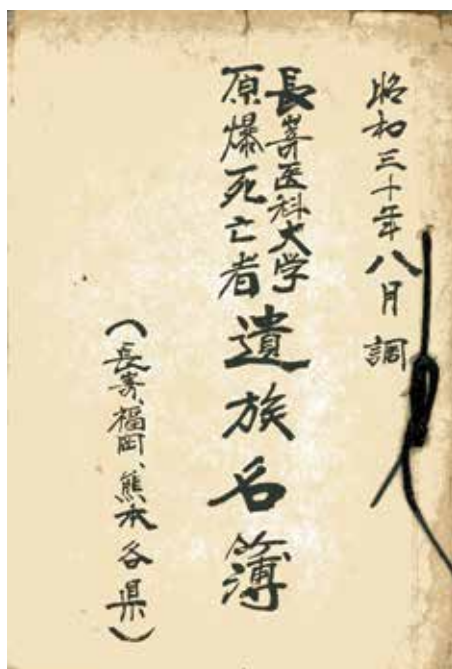 昭和三十年八月調
長嵜医科大学
原爆死亡者遺族名簿
（長嵜、福岡、熊本各県）